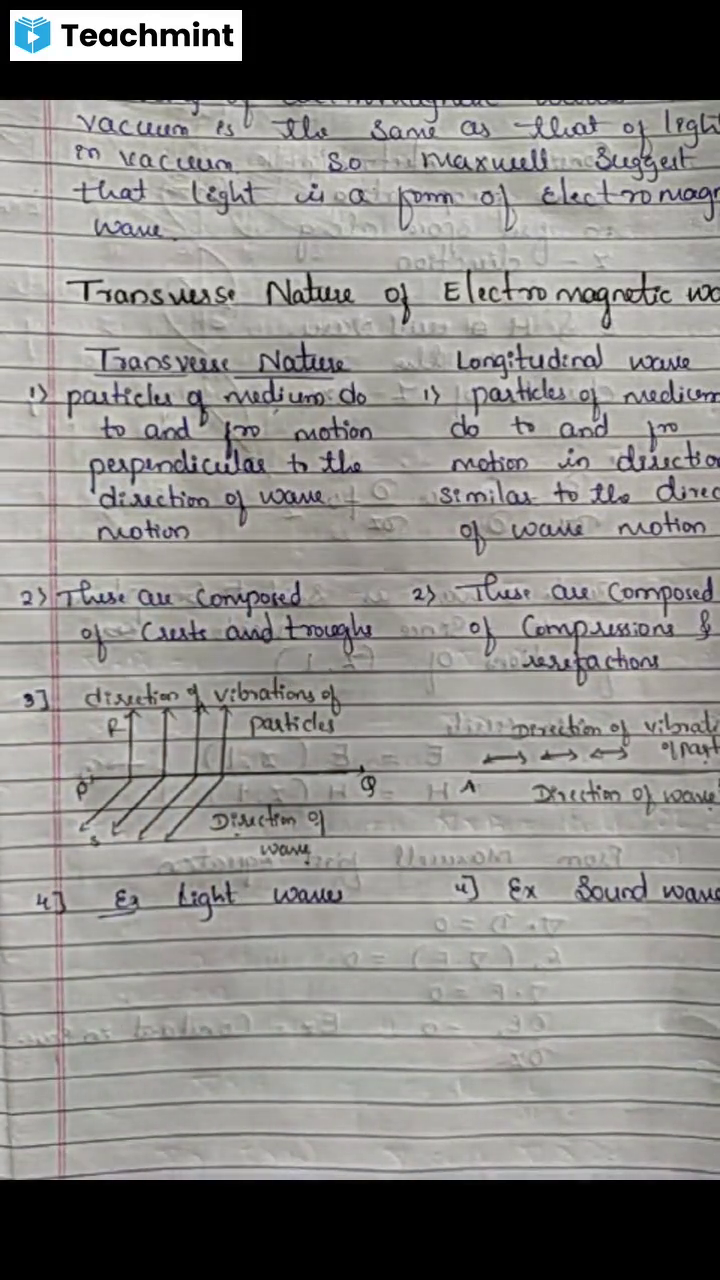 Teachmint
vacuum is the same as that of light
in vacuum so maxwell suggest
that light is a form of Electromagn
wave.
Transverse Nature of Electromagnetic wa
Transverse Nature
1) particles of medium do
to and fro motion
perpendicular to the
direction of wave
motion
2) These are composed
of Crests and troughs
3] direction of vibrations of
particles
R
P
Q
S
Direction of
wave
4] Ex Light waves
Longitudinal wave
1) particles of medium
do to and fro
motion in direction
similar to the direc
of wave motion
2) These are composed
of Compressions &
rerefactions
Direction of vibrati
of part
A
Direction of wave
4] Ex Sound wave